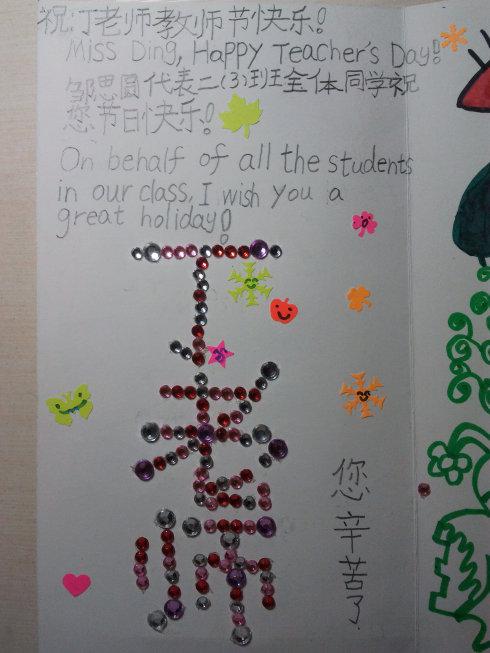 祝:丁老师教师节快乐!
Miss Ding, HaPPY Teacher's Day!
邹思圆代表二(3)班全体同学祝
您节日快乐!
On behalf of all the students
in our class, I wish you a
great holiday!
丁老师
您辛苦了